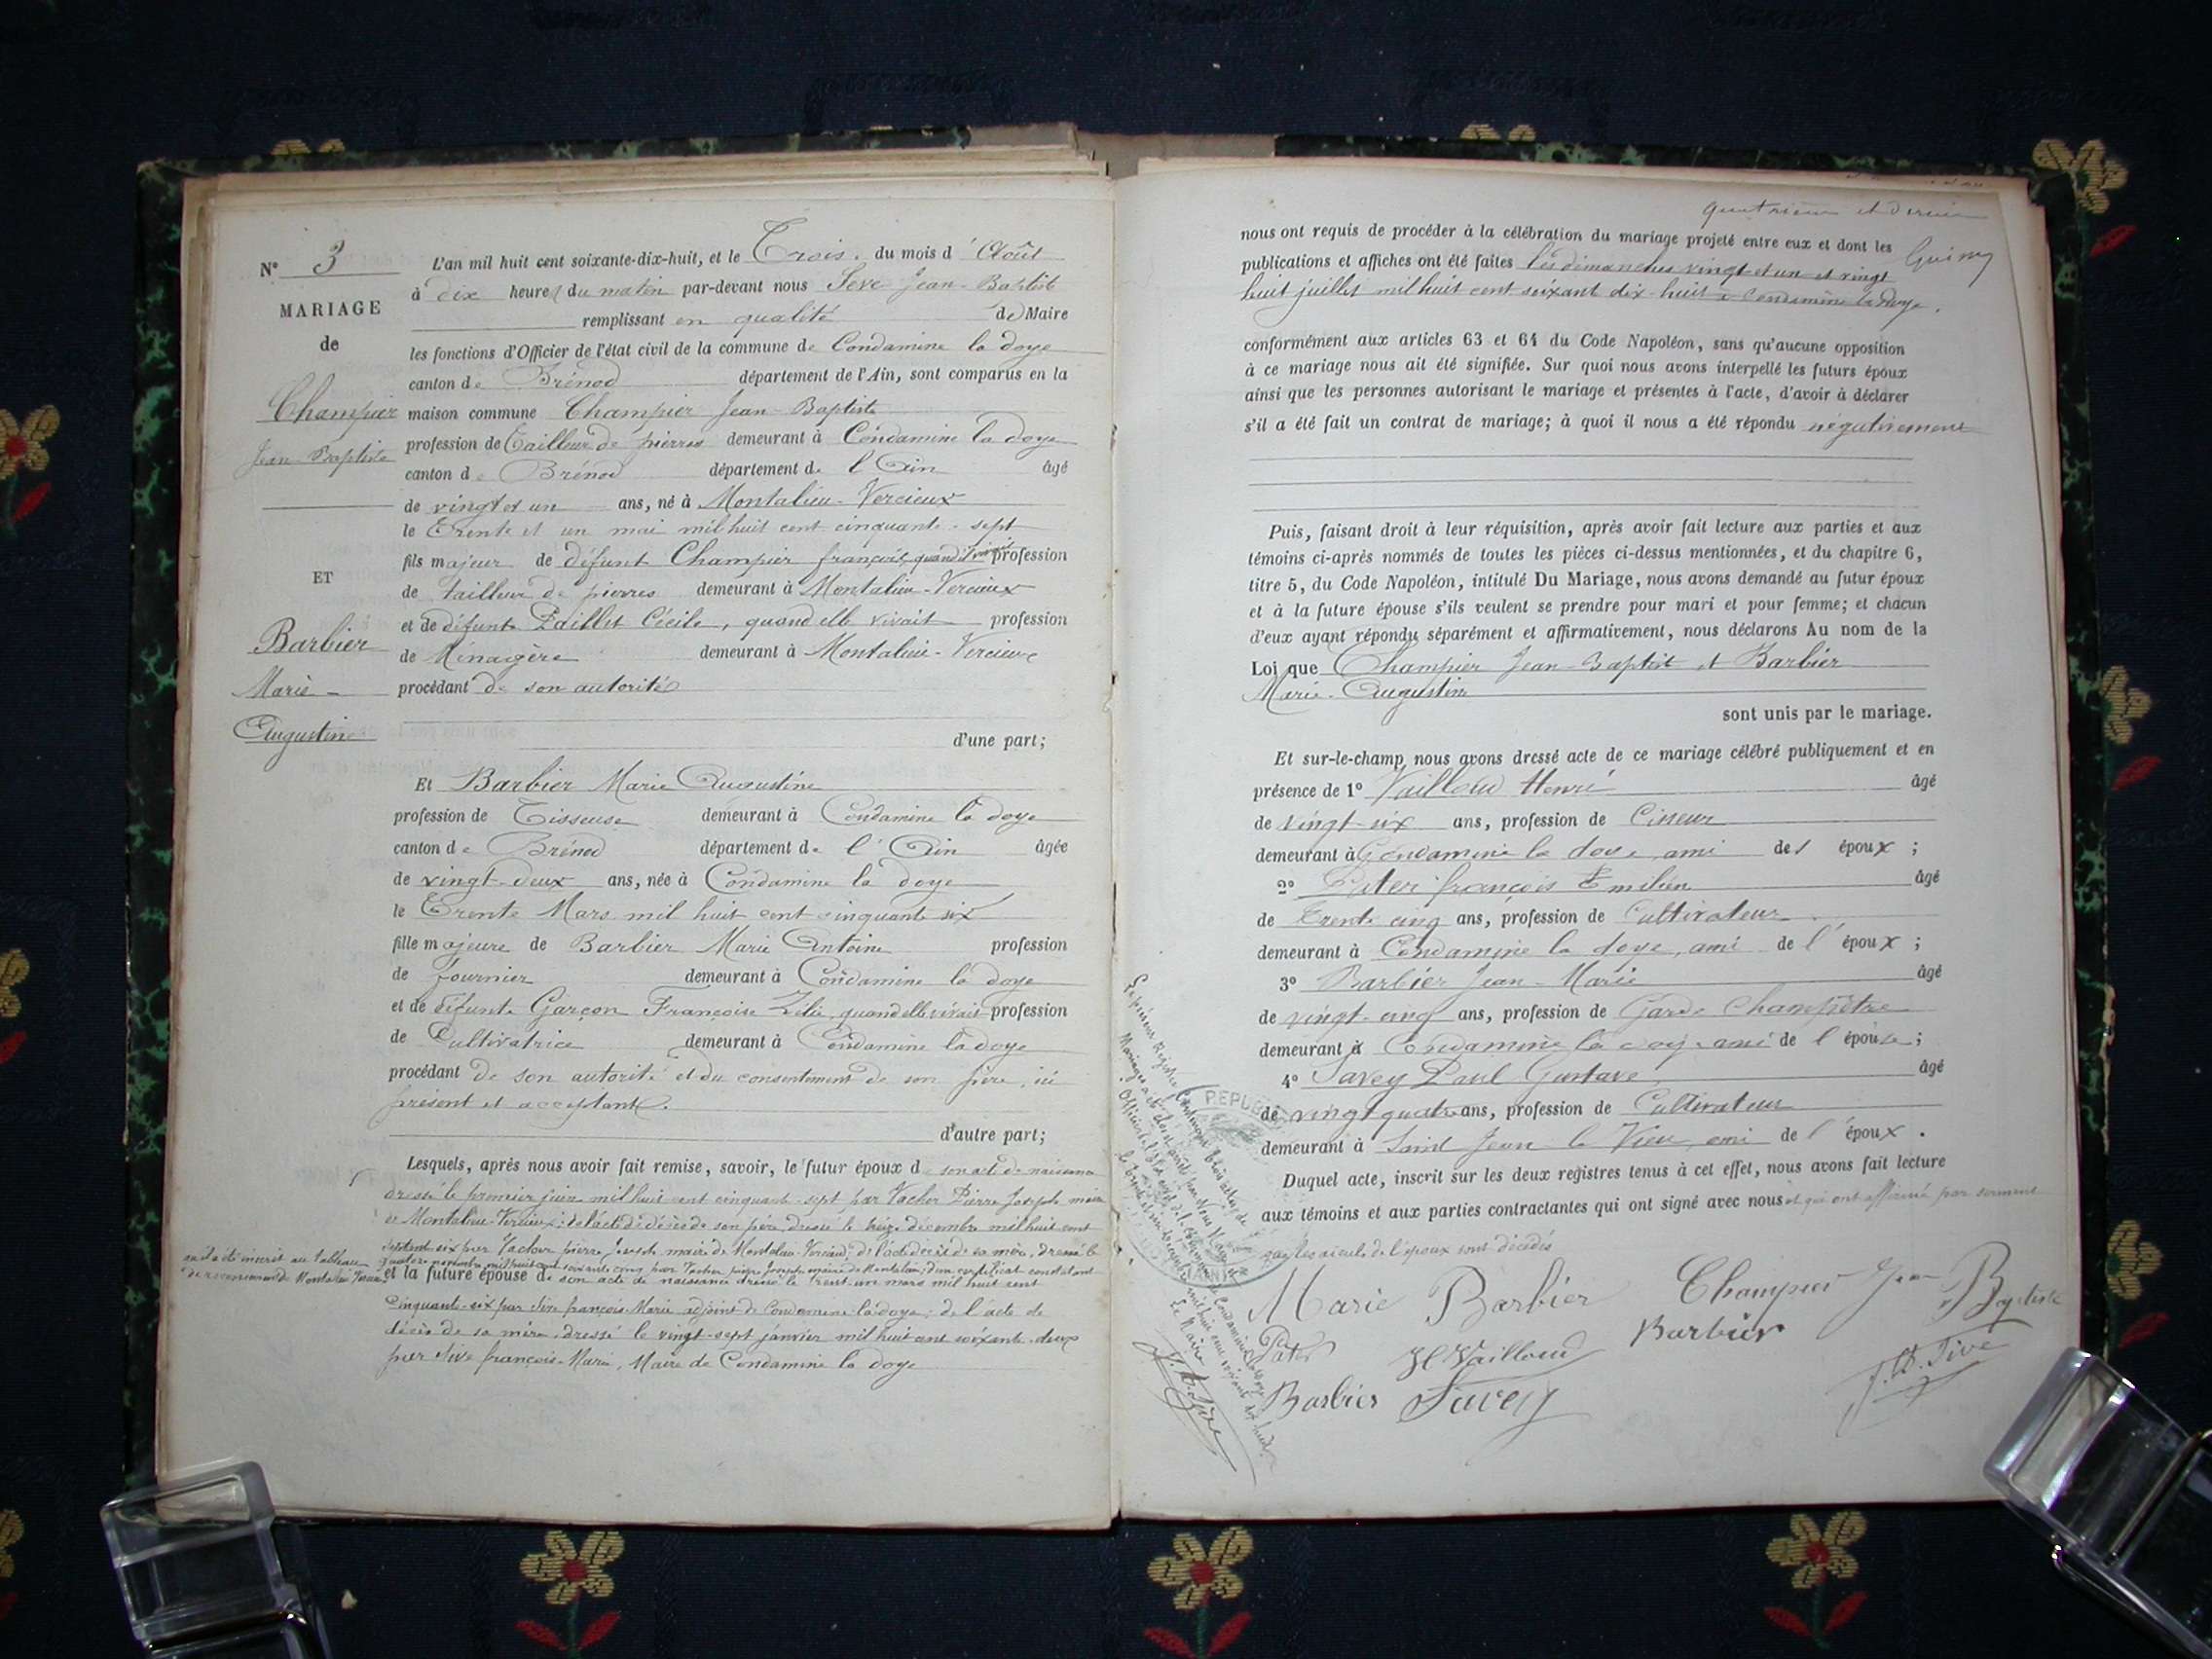 N° 3
MARIAGE
de
Champier
Jean Baptiste
ET
Barbier
Marie
Augustine
L'an mil huit cent soixante-dix-huit, et le Trois du mois d'Août
à dix heures du matin par-devant nous Sève Jean-Baptiste
remplissant en qualité de Maire
les fonctions d'Officier de l'état civil de la commune de Condamine la doye
canton de Brénod département de l'Ain, sont comparus en la
maison commune Champier Jean-Baptiste
profession de Tailleur de pierres demeurant à Condamine la doye
canton de Brénod département de l'Ain âgé
de vingt et un ans, né à Montalieu-Vercieux
le Trente et un mai mil huit cent cinquante-sept
fils majeur de défunt Champier françois, quand il vivait profession
de tailleur de pierres demeurant à Montalieu-Vercieux
et de défunte Paillet Cécile, quand elle vivait profession
de Ménagère demeurant à Montalieu-Vercieux
procédant de son autorité
d'une part;
Et Barbier Marie Augustine
profession de Tisseuse demeurant à Condamine la doye
canton de Brénod département de l'Ain âgée
de vingt-deux ans, née à Condamine la doye
le Trente Mars mil huit cent cinquante six
fille majeure de Barbier Marie Antoine profession
de Fournier demeurant à Condamine la doye
et de défunte Garçon Françoise Zélie, quand elle vivait profession
de Cultivatrice demeurant à Condamine la doye
procédant de son autorité et du consentement de son père, ici
présent et acceptant.
d'autre part;
Lesquels, après nous avoir fait remise, savoir, le futur époux de son acte de naissance
dressé le premier juin mil huit cent cinquante-sept par Vacher Pierre Joseph maire
de Montalieu-Vercieux; de l'acte de décès de son père, dressé le décembre mil huit cent
six par Vacher pierre Joseph maire de Montalieu-Vercieux; de l'acte décès de sa mère, dressé le
quatorze novembre mil huit cent soixante cinq par Vacher pierre Joseph maire de Montalieu; d'un certificat constatant
qu'il a été inscrit au tableau
de recensement de Montalieu Vercieux
et la future épouse de son acte de naissance dressé le Trent un mars mil huit cent
Cinquante-six par Sève françois-Marie adjoint de Condamine la doye; de l'acte de
décès de sa mère, dressé le vingt-sept janvier mil huit cent soixante-deux
par Sève françois-Marie, Maire de Condamine la doye
quatrième et dernier
nous ont requis de procéder à la célébration du mariage projeté entre eux et dont les
publications et affiches ont été faites les dimanches vingt et un et vingt
huit juillet mil huit cent soixant dix-huit à Condamine la doye.
conformément aux articles 63 et 64 du Code Napoléon, sans qu'aucune opposition
à ce mariage nous ait été signifiée. Sur quoi nous avons interpellé les futurs époux
ainsi que les personnes autorisant le mariage et présentes à l'acte, d'avoir à déclarer
s'il a été fait un contrat de mariage; à quoi il nous a été répondu négativement
Puis, faisant droit à leur réquisition, après avoir fait lecture aux parties et aux
témoins ci-après nommés de toutes les pièces ci-dessus mentionnées, et du chapitre 6,
titre 5, du Code Napoléon, intitulé Du Mariage, nous avons demandé au futur époux
et à la future épouse s'ils veulent se prendre pour mari et pour femme; et chacun
d'eux ayant répondu séparément et affirmativement, nous déclarons Au nom de la
Loi que Champier Jean-Baptist et Barbier
Marie-Augustine
sont unis par le mariage.
Et sur-le-champ nous avons dressé acte de ce mariage célébré publiquement et en
présence de 1° Vailloud Henri âgé
de vingt-six ans, profession de
demeurant à Condamine la doye, ami des époux;
2° Pater françois Emilien âgé
de Trente cinq ans, profession de Cultivateur
demeurant à Condamine la doye, ami de l'époux;
3° Barbier Jean-Marie âgé
de vingt-cinq ans, profession de Garde Champêtre
demeurant à Condamine la doye ami de l'épouse;
4° Savey Paul Gustave âgé
de vingt quatre ans, profession de Cultivateur
demeurant à Saint Jean le Vieux, ami de l'époux.
Duquel acte, inscrit sur les deux registres tenus à cet effet, nous avons fait lecture
aux témoins et aux parties contractantes qui ont signé avec nous et qui ont affirmé par serment
que les aïeuls de l'époux sont décédés
Marie Barbier
Champier Jean Baptiste
Pater
H. Vailloud
Barbier
J. B. Sève
Barbier
Savey
Le Maire
J. B. Sève